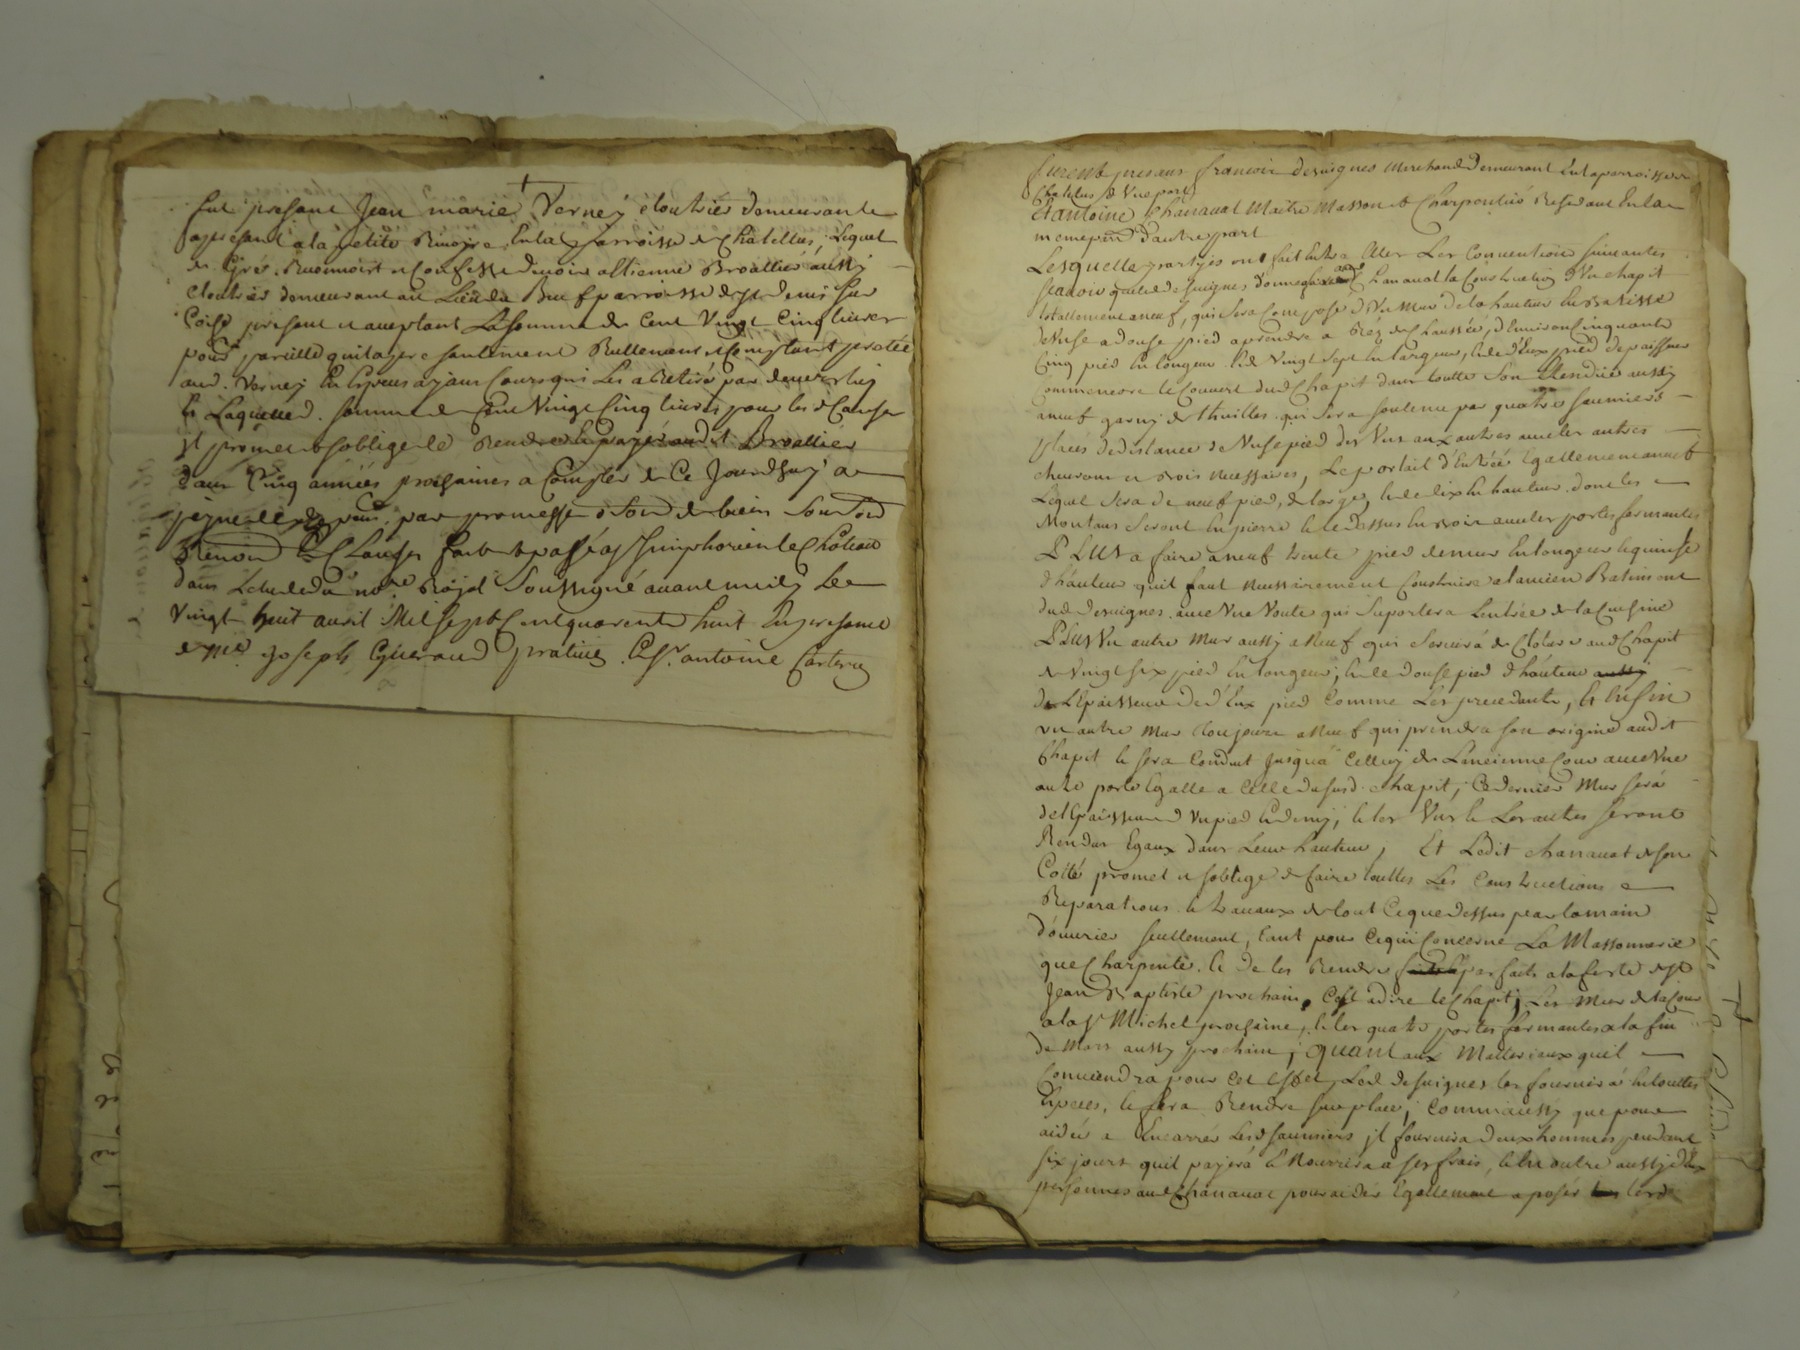 fut presant Jean marie Verney cloutrier demeurant
apresant a la petite Rivoyre en la parroisse de Chatellus, lequel
de Gré. Reconnoist et Confesse devoir a Etienne Broallier aussy
Cloutrier demeurant au Lieu du Beuf parroisse de St denis sur
Coise present et aceptant La somme de Cent Vingt Cinq livres
pour pareille quil a presentement Reellement et Comptant pretée
aud. Verney en Especes ayant Cours qui Les a Retiré par devers luy
et Laquelled. somme de Cent Vingt Cinq livres pour les d Causes
il promet et soblige de Rendre et payer audit Broallier
dans Cinq années prochaines a Compter de Ce Jourdhuy a
peyne de depens par promesse sous de biens soum on
Renon Et Clauses fait et passé a St Simphorien le Château
dans Letude du not.re Royal Soussigné avant midy Le
Vingt huit avril Mil sept Cent quarente huit En presence
de M.e Joseph Gueraud pratici. & Sr. antoine
furent presans francois desvignes Marchand Demeurant En la parroisse de
Chatelus d'Vne part
Et antoine Chanavat Maitre Masson et Charpentier Residant En la
meme par D'autre part
Lesquelles partyes ont fait Entre Elles Les Conventions suivantes
scavoir que led desvignes donne aud Chanavat la Construction D'Vn chapit
totallement a neuf, qui sera Composé d'Vn Mur de la hauteur En
de Nese a douse pied a prendre a Réz de Chaussée, d'Environ Cinquante
Cinq pied En longeur Et de Vingt sept En largeur, Et de d'Eux pied depaisseur
Comme encore le Couvert dud Chapit dans toutte Son Etendüe aussy
a neuf garny de thuilles qui sera soutenu par quatre saumiers
placés de distance de Neuf pied des Vns aux autres avec les autres
chevrons et bois necessaires, Le portail d'Entrée Egallement a neuf
Lequel Sera De neuf pied, de large, Et de dix En hauteur dont les
Montans Seront En pierre et le dessus En bois avec les portes fermantes
PLUS a faire a neuf trente pied de mur En longeur Et quinse
d'hauteur quil faut necessairement Construire a lancien Batiment
dud Desvignes. avec Vne Voute qui suportera Lentrée de la Cuisine
PLUS Vn autre Mur aussy a Neuf qui servira de Cloture aud Chapit
de Vingt six pied En longeur, Et de douse pied d'hauteur aussy
de LEpaisseur De d'Eux pied Comme Les precedants, Et Enfin
vn autre Mur toujours a Neuf qui prendra son origine audit
Chapit Et sera Conduit Jusqua Celluy de Lancienne Cour avec Vne
autre porte Egalle a Celle du susd. chapit; Ce dernier Mur sera
de lEpaisseur d'vn pied Et demy, Et les Vns Et Les autres seront
Rendus Egaux dans Leur hauteur, Et Ledit chanavat de son
Coité promet et soblige de faire touttes Les Constructions
Reparations Et travaux de tout Ce que dessus pour la main
d'ouvrier seullement, tant pour Ce qui Concerne La Massonnerie
que Charpente. Et De les Rendre parfaits a la feste de St
Jean Baptiste prochain, C'est adire le Chapit, Les Mur de la Cour
a la St Michel prochaine, Et les quatre portes fermantes a la fin
de Mars aussy prochain; quant aux Matteriaux quil
Conviendra pour Cet Effet, Led desvignes les fournira En touttes
Especes, Et fera Rendre sur place; Comme aussy que pour
aider a Encarrer Lesd saumiers il fournira deux hommes pendant
six jours quil payera Et Nourrira a ses frais, Et En outre aussy deux
personnes aud Chanavat pour aider Egallement a poser lesd